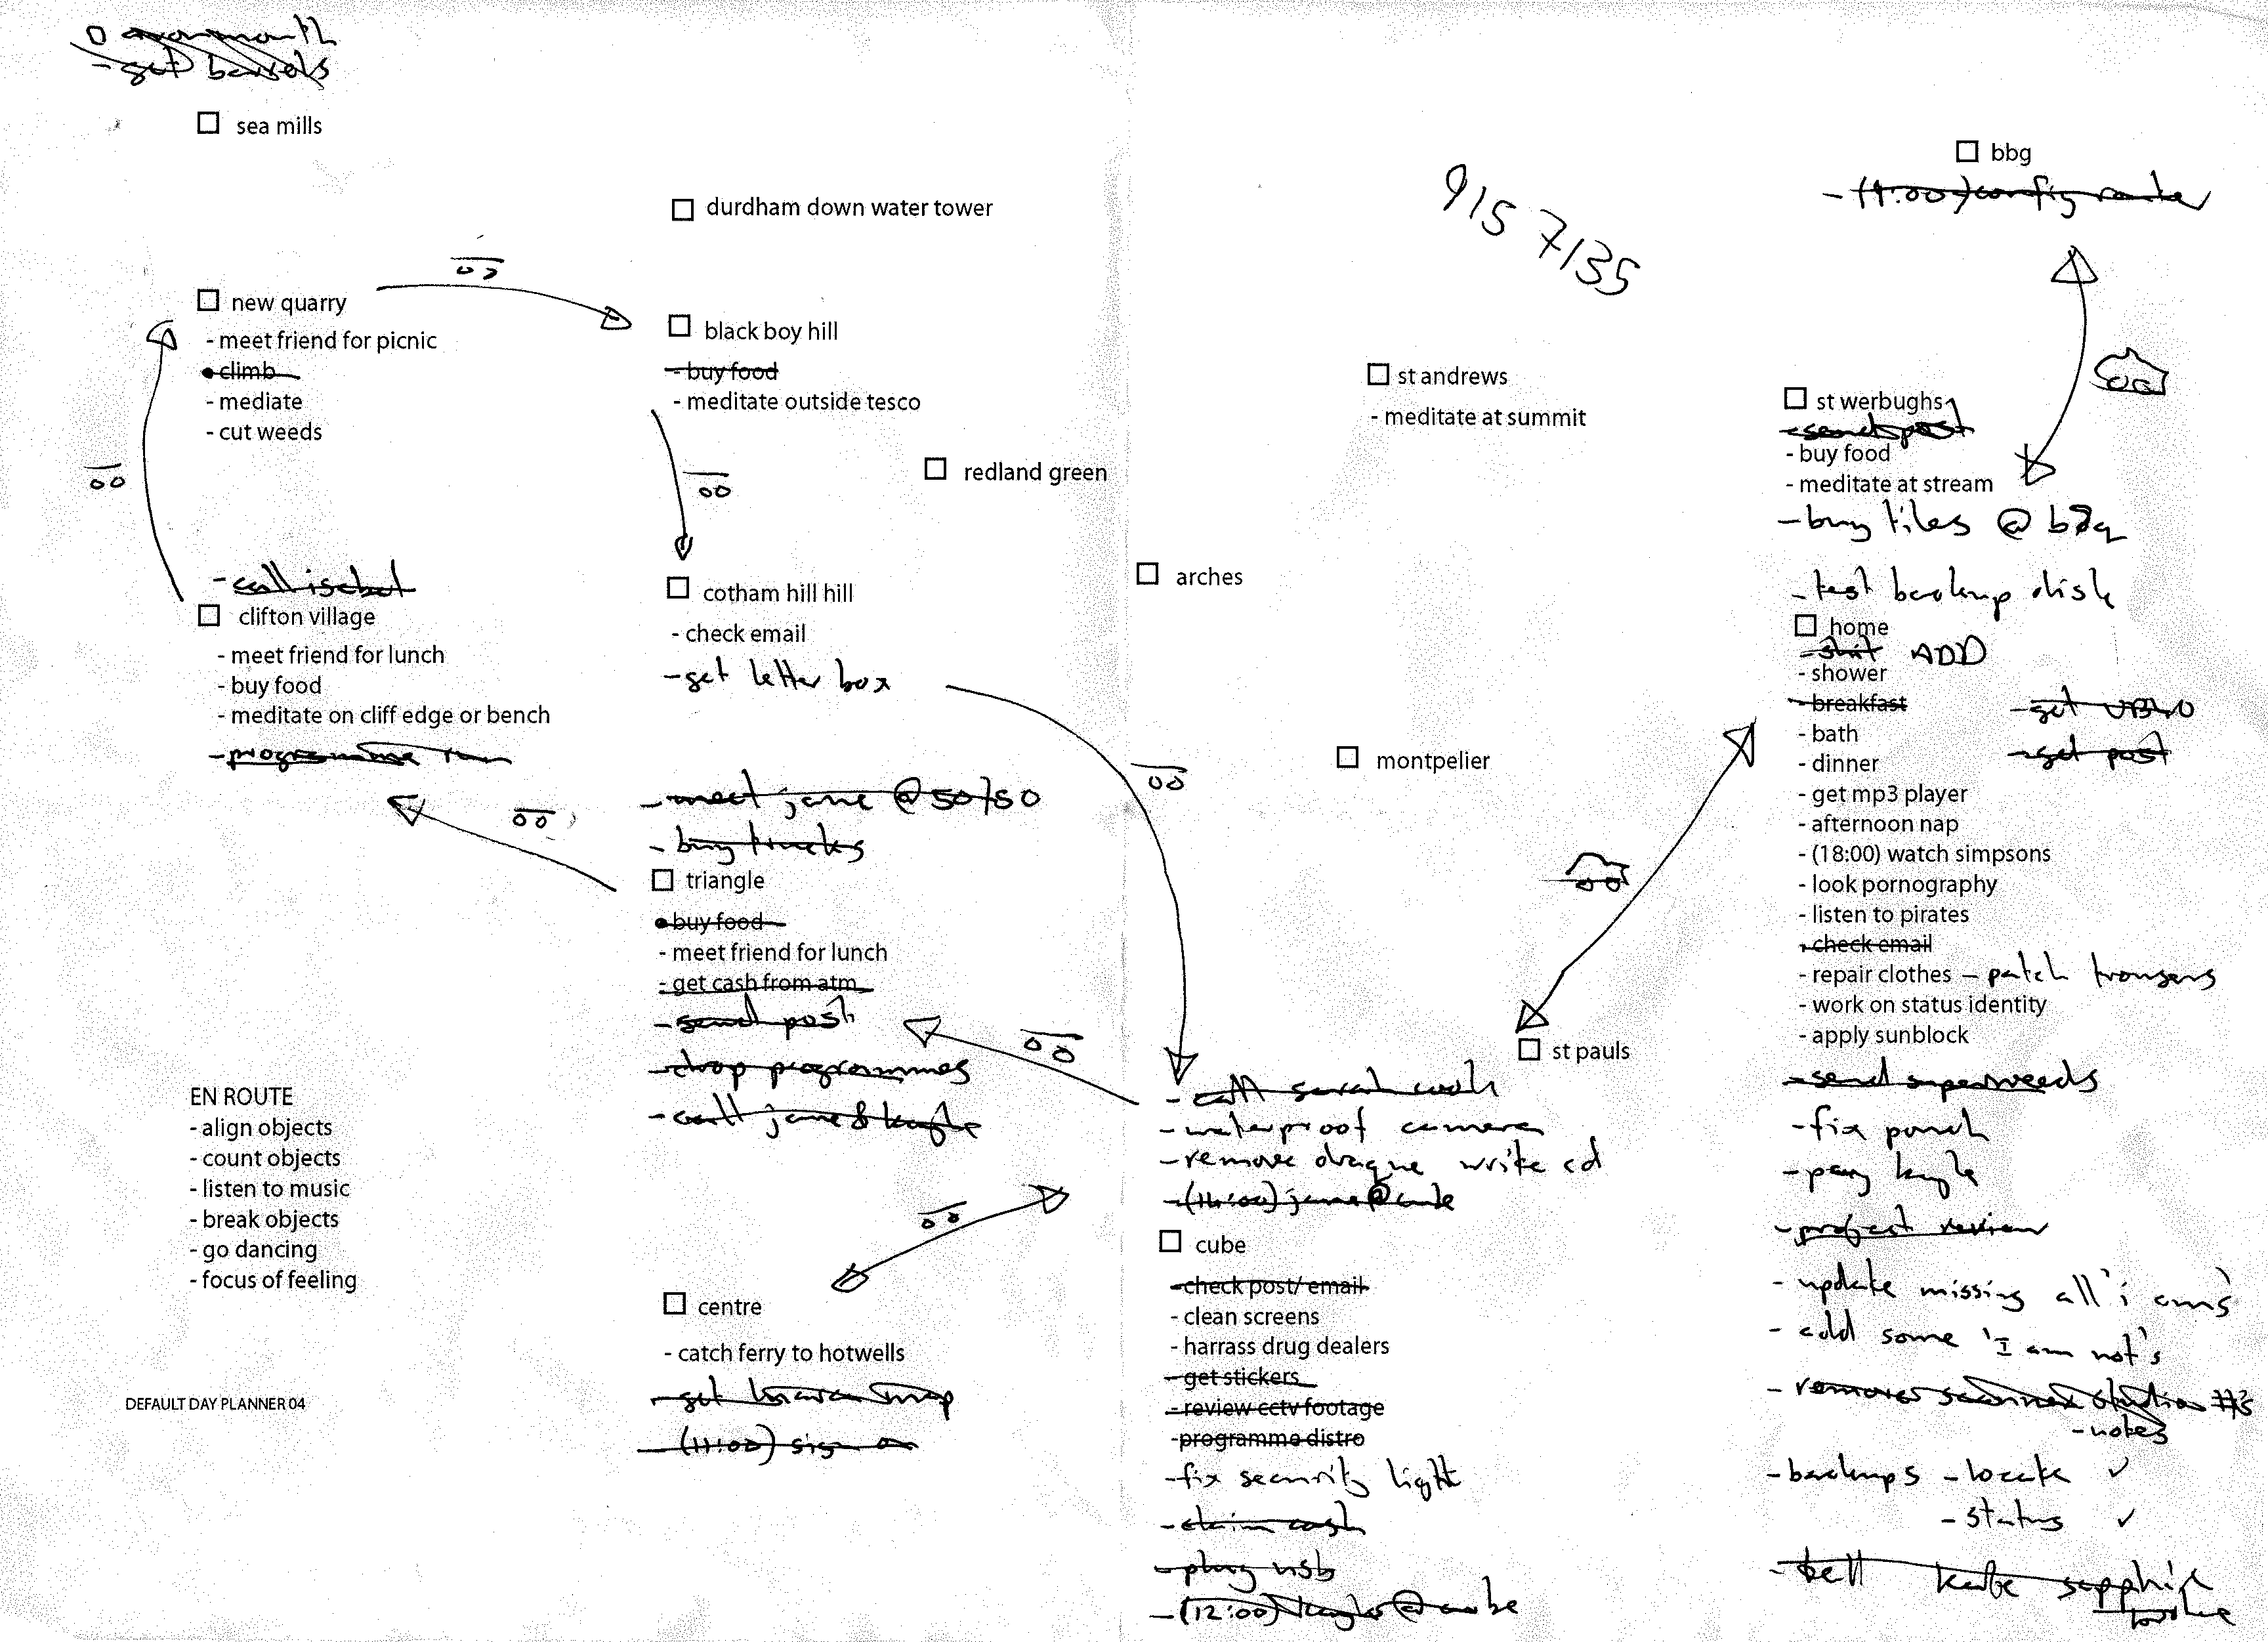 - get barrels
sea mills
durdham down water tower
new quarry
- meet friend for picnic
- climb
- mediate
- cut weeds
black boy hill
- buy food
- meditate outside tesco
redland green
915 7135
bbg
- (9:00) config router
st andrews
- meditate at summit
st werbughs
- send post
- buy food
- meditate at stream
- buy tiles @ b&q
clifton village
- meet friend for lunch
- buy food
- meditate on cliff edge or bench
- programme
cotham hill hill
- check email
- get letter box
arches
montpelier
- test backup disk
home
- shit ADD
- shower
- breakfast
- bath
- dinner
- get mp3 player
- afternoon nap
- (18:00) watch simpsons
- look pornography
- listen to pirates
- check email
- repair clothes - patch trousers
- work on status identity
- apply sunblock
- get
- get post
- send superweeds
- fix
- pay kayle
- project review
- update missing all 'i ams'
- add some 'I am not's
- notes
- backups - locate ✓
- status ✓
- tell kate sapphire
- meet jane @ 50/50
- buy trucks
triangle
- buy food
- meet friend for lunch
- get cash from atm
- send post
- drop programmes
- call jane &
st pauls
- call sarah
- waterproof camera
- remove write cd
- jane @ cube
cube
- check post/ email
- clean screens
- harrass drug dealers
- get stickers
- review cctv footage
- programme distro
- fix security light
- claim cash
- plug usb
- (12:00) @ cube
centre
- catch ferry to hotwells
- get map
- (11:00) sign on
EN ROUTE
- align objects
- count objects
- listen to music
- break objects
- go dancing
- focus of feeling
DEFAULT DAY PLANNER 04